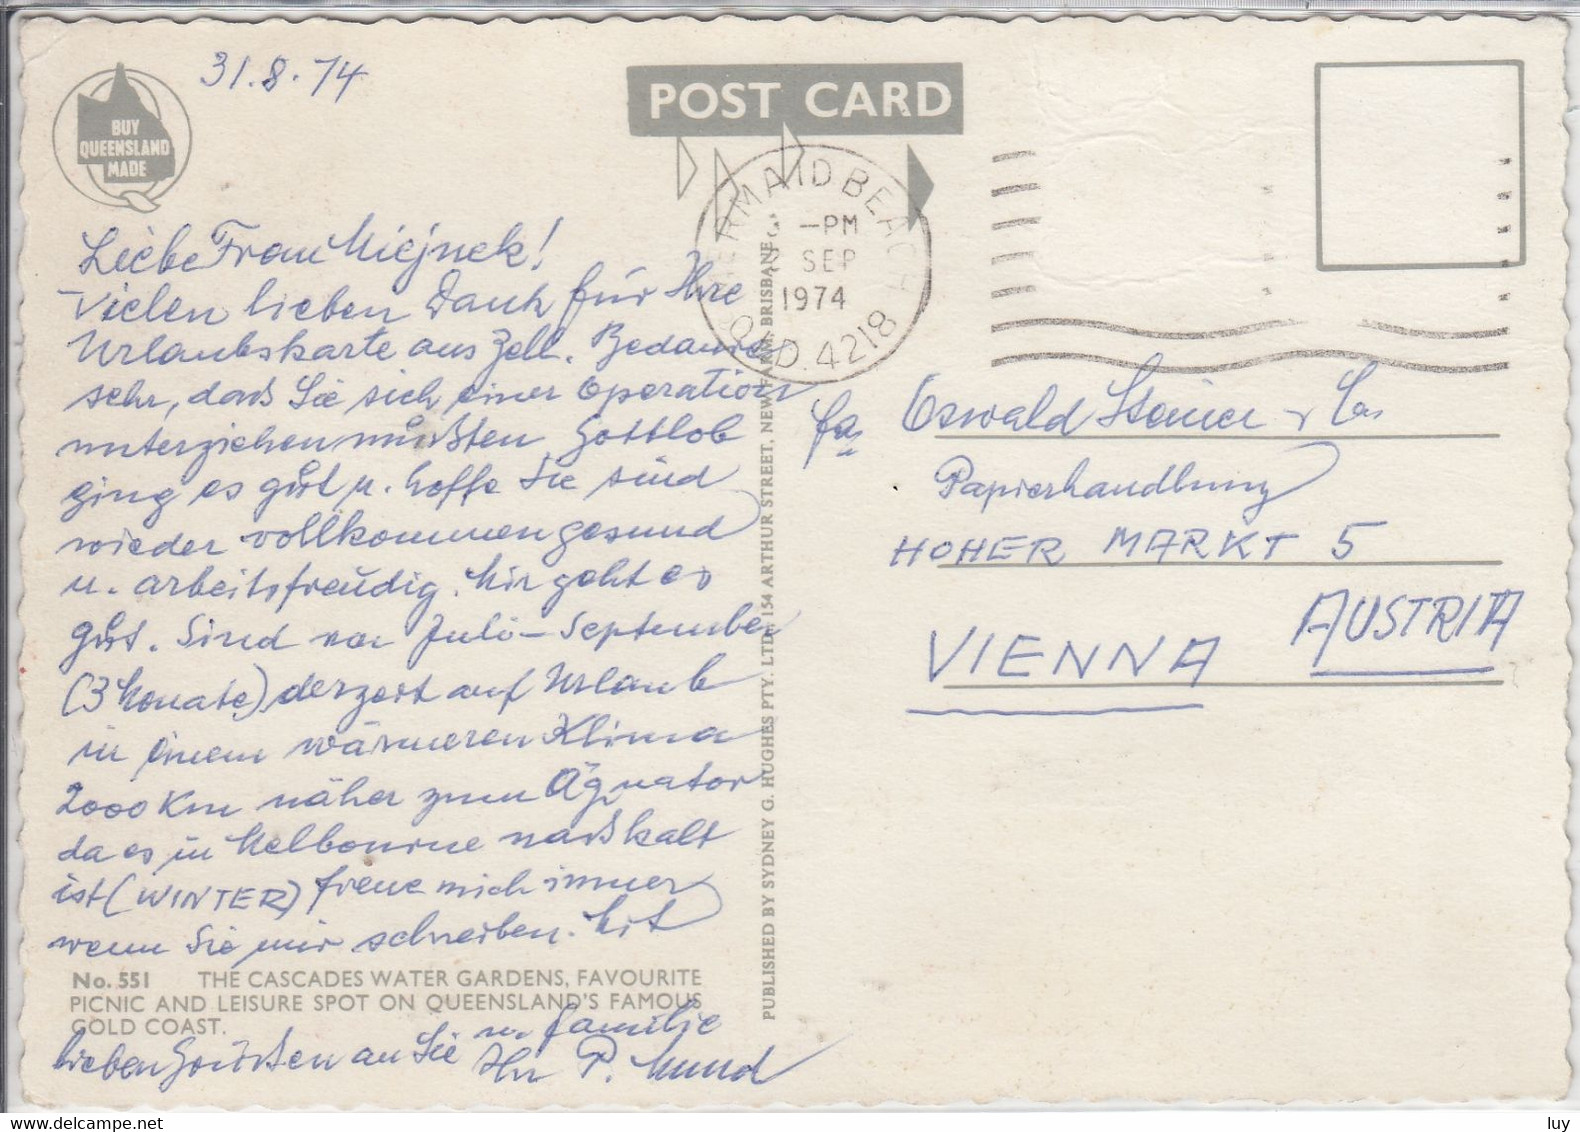 31.8.74
POST CARD
BUY
QUEENSLAND
MADE
MERMAID BEACH
-PM
SEP
1974
QLD. 4218
Liebe Frau Miejnek!
Vielen lieben Dank für Ihre
Urlaubskarte aus Zell. Bedaure
sehr, daß Sie sich einer Operation
unterziehen mußten, Gottlob
ging es gut u. hoffe Sie sind
wieder vollkommen gesund
u. arbeitsfreudig. Mir geht es
gut. Sind von Juli-September
(3 Monate) derzeit auf Urlaub
in einem wärmeren Klima
2000 Km näher zum Äquator
da es in Melbourne naßkalt
ist (WINTER) freue mich immer
wenn Sie mir schreiben. Mit
No. 551 THE CASCADES WATER GARDENS, FAVOURITE
PICNIC AND LEISURE SPOT ON QUEENSLAND'S FAMOUS
GOLD COAST.
lieben Grüßen an Sie u. Familie
Ihr P. Mund
PUBLISHED BY SYDNEY G. HUGHES PTY. LTD. 154 ARTHUR STREET, NEW FARM, BRISBANE
Fa. Oswald Steiner & Co.
Papierhandlung
HOHER MARKT 5
VIENNA AUSTRIA
luy